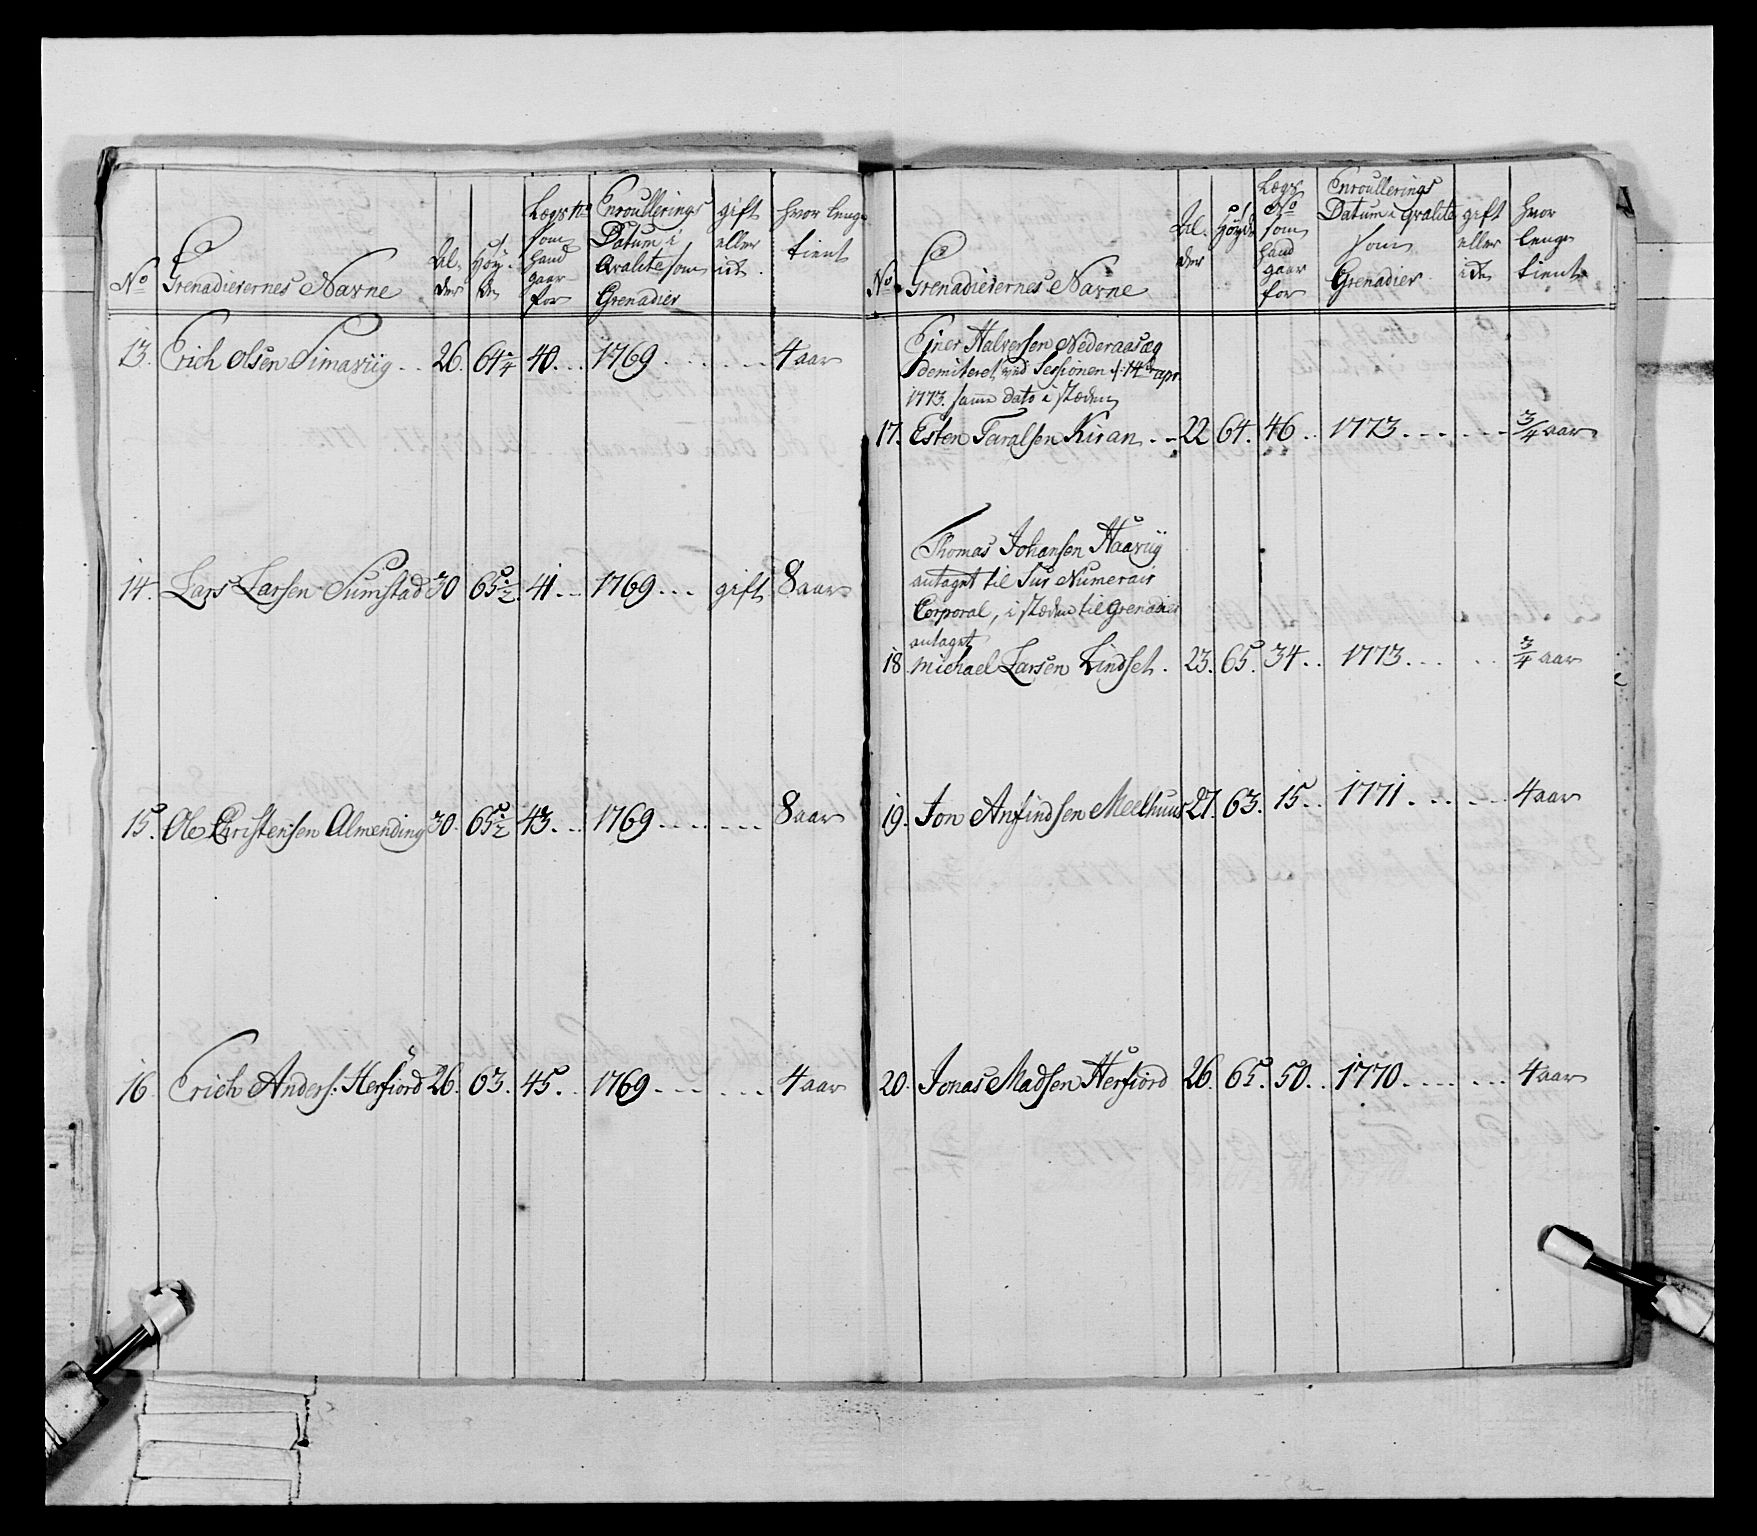 No
Grenadierernes Navne
Al-
der
Høy-
de
Lægs No
som
hand
gaar
for
Enroullerings
Datum i
Qvalite som
Grenadier
gift
eller
idẽ
hvor lenge
tient
13. Erich Olsen Simaviig .. 26. 64¼ 40... 1769...... 4 aar
14. Lars Larsen Sumstad 30 65½ 41... 1769... gift 8 aar
15. Ole Christensen Almending 30. 65½ 43... 1769...... 8 aar
16. Erich Anders: Herfiord 26. 63. 45... 1769...... 4 aar
No.
Grenadierernes Navne
Al-
der
Høyde
Lægs
No
som
hand
gaar
for
Enroullerings
Datum i qvalite
som
Grenadier
gift
eller
idẽ
hvor
lenge
tient
Einer Halversen Nederaasæg
demiteret ved Sessionen d: 14de apr.
1773. samme dato i stæden
17. Esten Taralsen Kiran .. 22 64. 46.. 1773...... ¾ aar
Thomas Johansen Haaviig
antaget til Sur Numerair
Corporal, i stæden til Grenadier
antaget
18. Michael Larsen Lindset. 23. 65. 34.. 1773..... ¾ aar
19. Jon Anfindsen Meelhuus 27. 63. 15.. 1771...... 4 aar
20. Jonas Madsen Herfiord 26. 65. 50.. 1770...... 4 aar